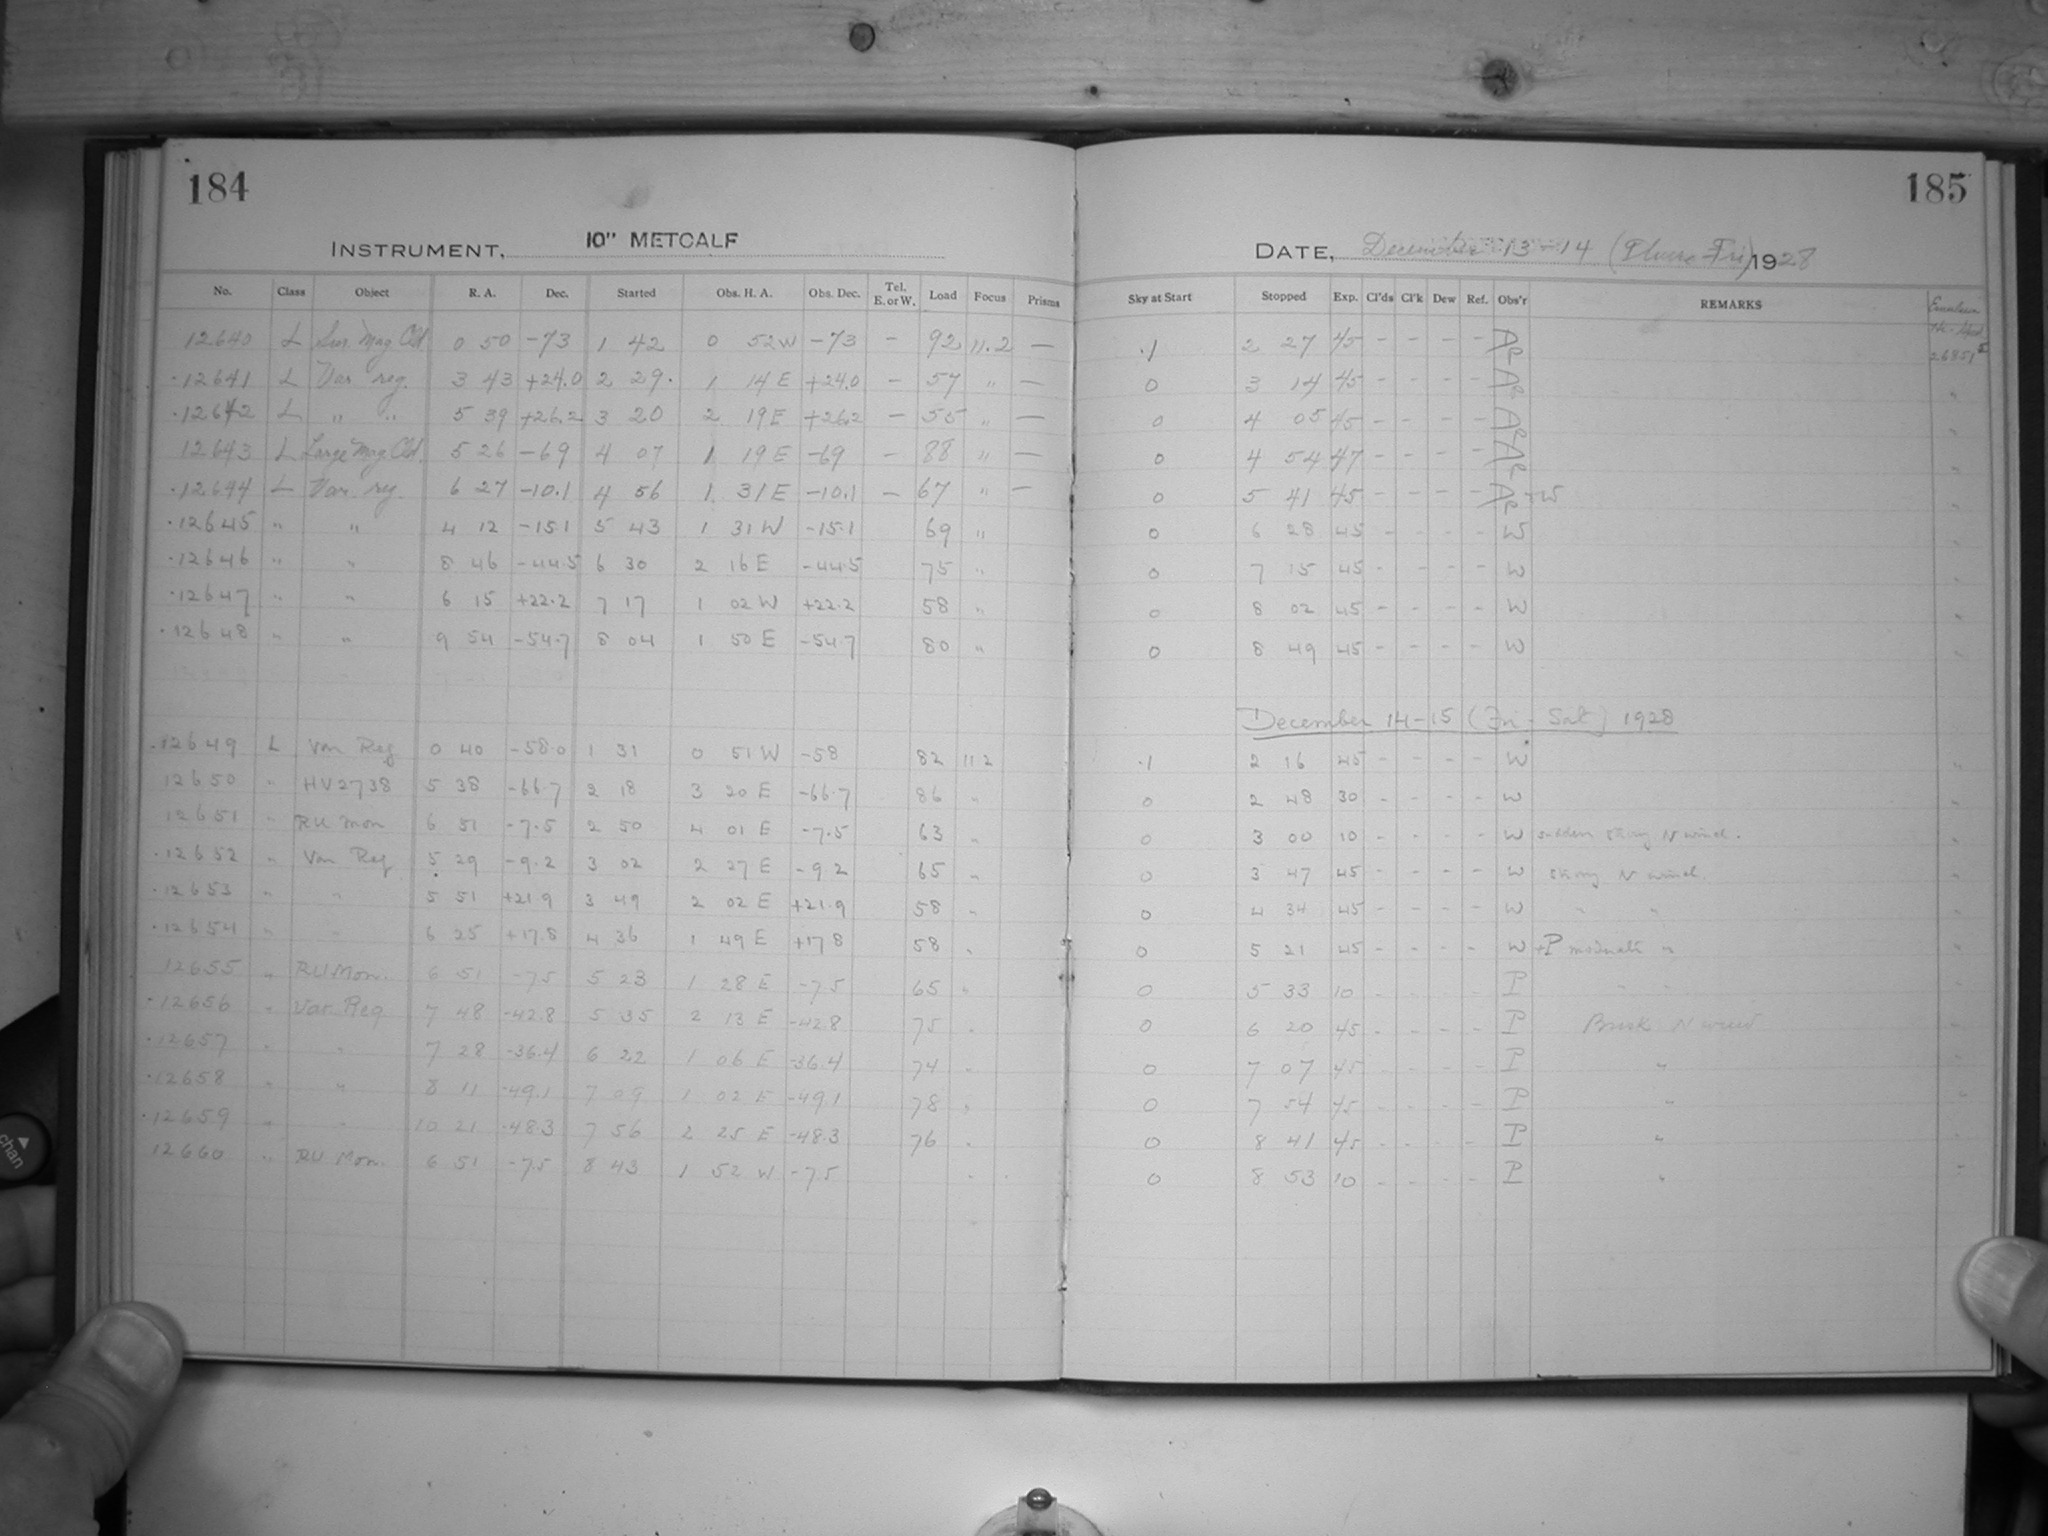 184
185
INSTRUMENT, 10" METCALF
DATE, December 13-14 (Thurs-Fri) 1928
No. Class Object R. A. Dec. Started Obs. H. A. Obs. Dec. Tel. E. or W. Load Focus Prisms Sky at Start Stopped Exp. Cl'ds Cl'k Dew Ref. Obs'r REMARKS Emulsion
12640 L Sm. Mag Cld 0 50 -73 1 42 0 52W -73 - 92 11.2 — .1 2 27 45 - - - - 26851
.12641 L Var reg. 3 43 +24.0 2 29. 1 14E +24.0 - 57 " — 0 3 14 45 - - - - "
.12642 L " " 5 39 +26.2 3 20 2 19E +26.2 - 55 " — 0 4 05 45 - - - - "
12643 L Large Mag Cld. 5 26 -69 4 07 1 19E -69 - 88 " — 0 4 54 47 - - - - "
.12644 L Var. reg. 6 27 -10.1 4 56 1 31E -10.1 - 67 " — 0 5 41 45 - - - - +W "
.12645 " " 4 12 -15.1 5 43 1 31W -15.1 69 " 0 6 28 45 - - - - W "
.12646 " " 8 46 -44.5 6 30 2 16E -44.5 75 " 0 7 15 45 - - - - W "
.12647 " " 6 15 +22.2 7 17 1 02W +22.2 58 " 0 8 02 45 - - - - W "
.12648 " " 9 54 -54.7 8 04 1 50E -54.7 80 " 0 8 49 45 - - - - W "
December 14-15 (Fri-Sat) 1928
.12649 L Var Reg 0 40 -58.0 1 31 0 51W -58 82 11 2 .1 2 16 45 - - - - W "
12650 " HV2738 5 38 -66.7 2 18 3 20E -66.7 86 " 0 2 48 30 - - - - W "
12651 " RU Mon 6 51 -7.5 2 50 4 01E -7.5 63 " 0 3 00 10 - - - - W sudden strong N wind. "
.12652 " Var Reg 5 29 -9.2 3 02 2 27E -9 2 65 " 0 3 47 45 - - - - W strong N wind. "
.12653 " " 5 51 +21.9 3 49 2 02E +21.9 58 " 0 4 34 45 - - - - W " " "
.12654 " " 6 25 +17.8 4 36 1 49E +17 8 58 " 0 5 21 45 - - - - W +P moderate " "
12655 " RU Mon. 6 51 -7.5 5 23 1 28E -7.5 65 " 0 5 33 10 - - - - P " " "
.12656 " Var Reg 7 48 -42.8 5 35 2 13E -42.8 75 " 0 6 20 45 - - - - P Brisk N wind "
.12657 " " 7 28 -36.4 6 22 1 06E -36.4 74 " 0 7 07 45 - - - - P " "
.12658 " " 8 11 -49.1 7 09 1 02E -49.1 78 " 0 7 54 45 - - - - P " "
.12659 " " 10 21 -48.3 7 56 2 25E -48.3 76 " 0 8 41 45 - - - - P " "
12660 " RU Mon. 6 51 -7.5 8 43 1 52W -7.5 " 0 8 53 10 - - - - P " "